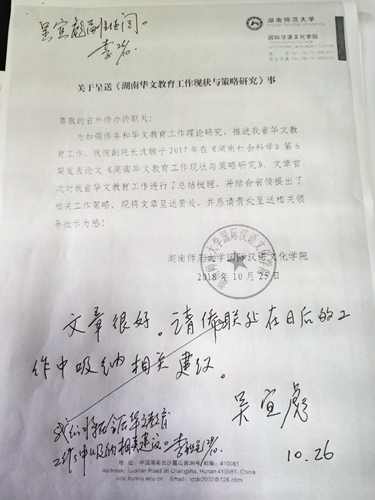 呈宜彪副主任阅。
湖南师范大学
国际汉语文化学院
关于呈送《湖南华文教育工作现状与策略研究》事
尊敬的省外侨办侨联处：
为加强侨务和华文教育工作理论研究，推进我省华文教
育工作，我院副院长沈敏于2017年在《湖南社会科学》第6
期发表论文《湖南华文教育工作现状与策略研究》，文章首
次对我省华文教育工作进行了总结梳理，并结合省情提出了
相关工作策略，现将文章呈送贵处，并恳请贵处呈送相关领
导批示为感！
湖南师范大学国际汉语文化学院
2018年10月25日
文章很好。请侨联处在日后的工
作中吸纳相关建议。
吴宜彪
10.26
我们将在今后华文教育
工作中吸纳相关建议。
地 址：中国湖南长沙麓山路36号 邮编：410081
Address: Lushan Road 36 Changsha, Hunan, China 410081